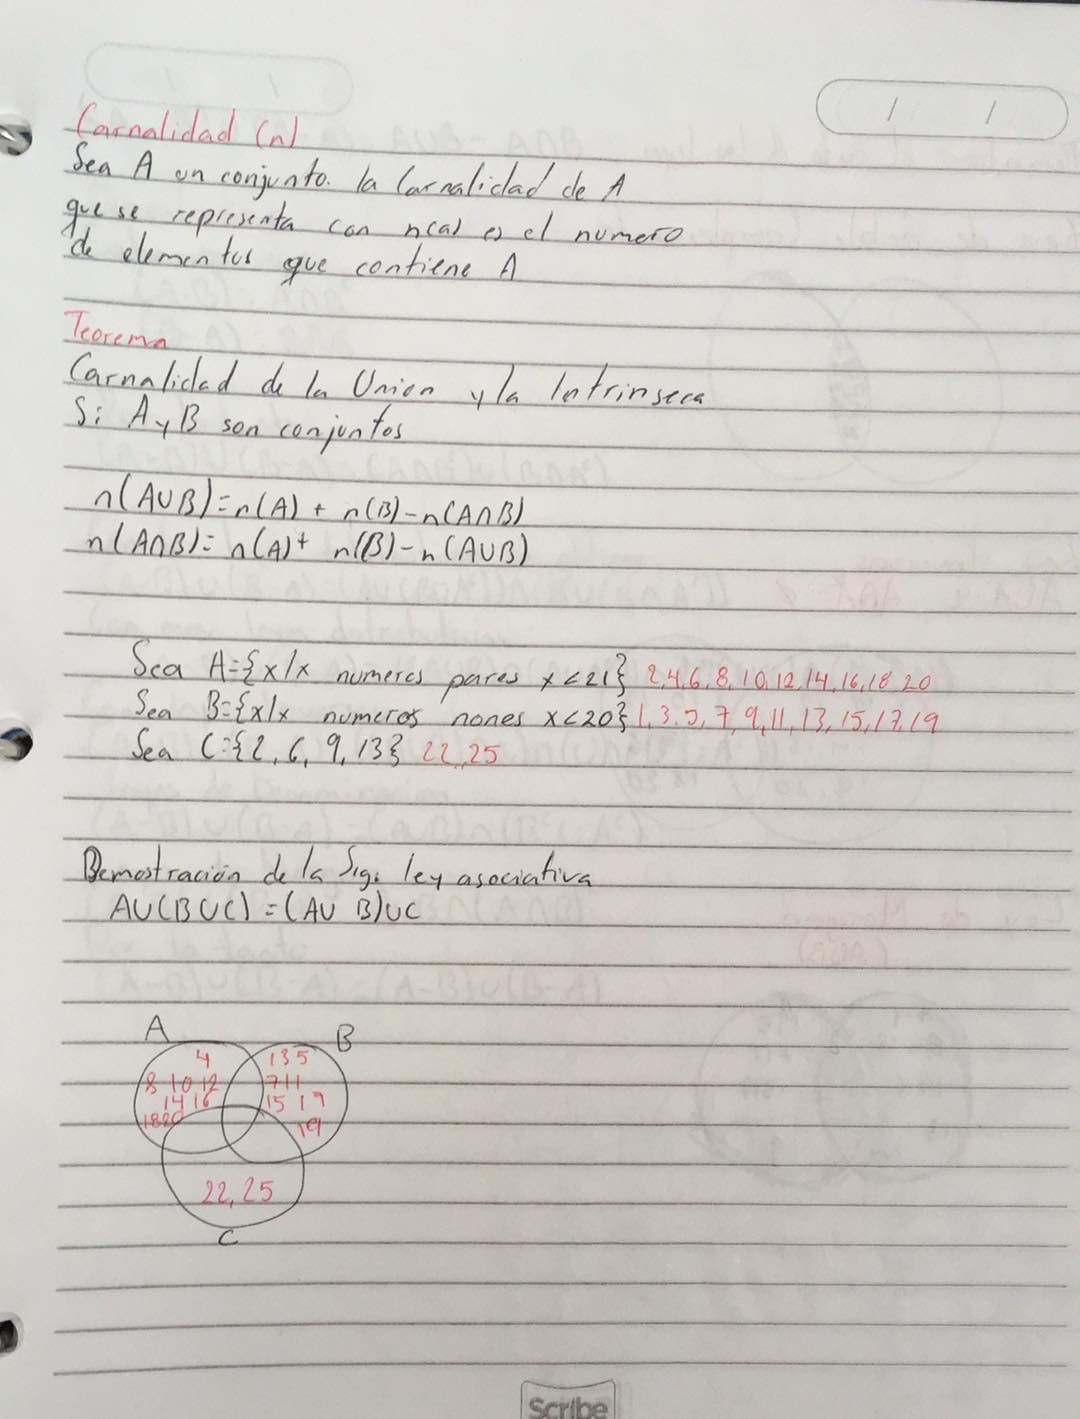 Carnalidad (n)
Sea A un conjunto. la Carnalidad de A
que se representa con n(a) es el numero
de elementos que contiene A
Teorema
Carnalidad de la Union y la Intrinseca
Si A y B son conjuntos
n(A∪B)=n(A) + n(B)-n(A∩B)
n(A∩B)= n(A)+ n(B)-n(A∪B)
Sea A={x/x numeros pares x<21} 2,4,6,8,10,12,14,16,18 20
Sea B={x/x numeros nones x<20} 1,3,5,7,9,11,13,15,17,19
Sea C={2,6,9,13} 22,25
Demostración de la Sig. ley asociativa
A∪(B∪C)=(A∪ B)∪C
A B
4 1 3 5
8 10 12 7 11
14 16 15 17
18 20 19
22,25
C
Scribe